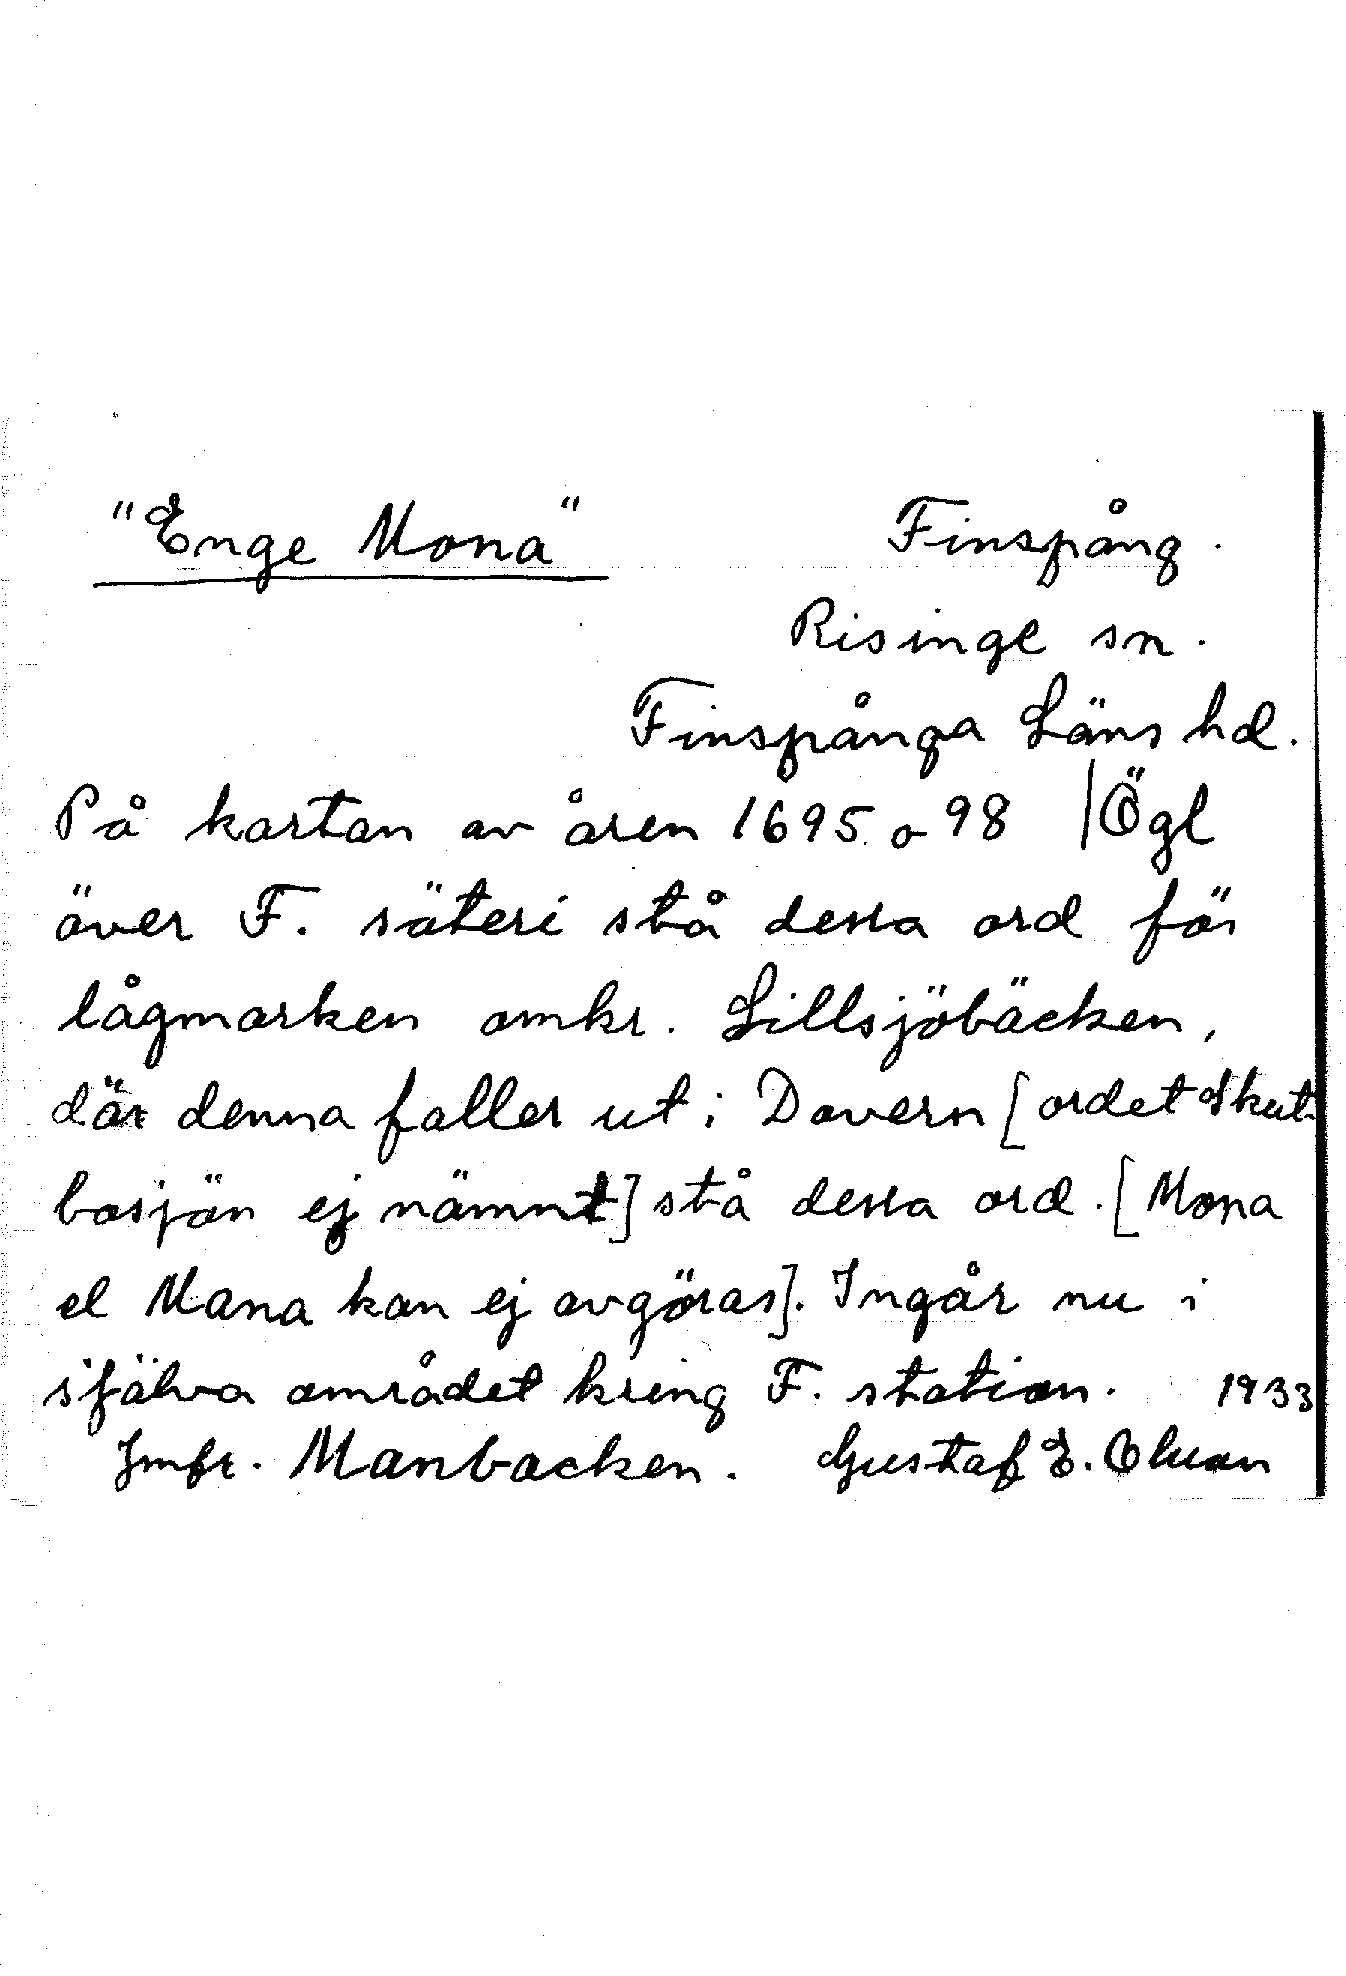 "Enge Mona" Finspång.
Risinge sn.
Finspånga Läns hd.
På kartan av åren 1695 o 98 | Ögl
över F. säteri stå dessa ord för
lågmarken omkr. Lillsjöbäcken,
där denna faller ut i Dovern [ordet Skut-
bosjön ej nämnt] stå dessa ord. [Mona
el Mana kan ej avgöras]. Ingår nu i
själva området kring F. station. 1933
Jmfr. Manbacken. Gustaf E.